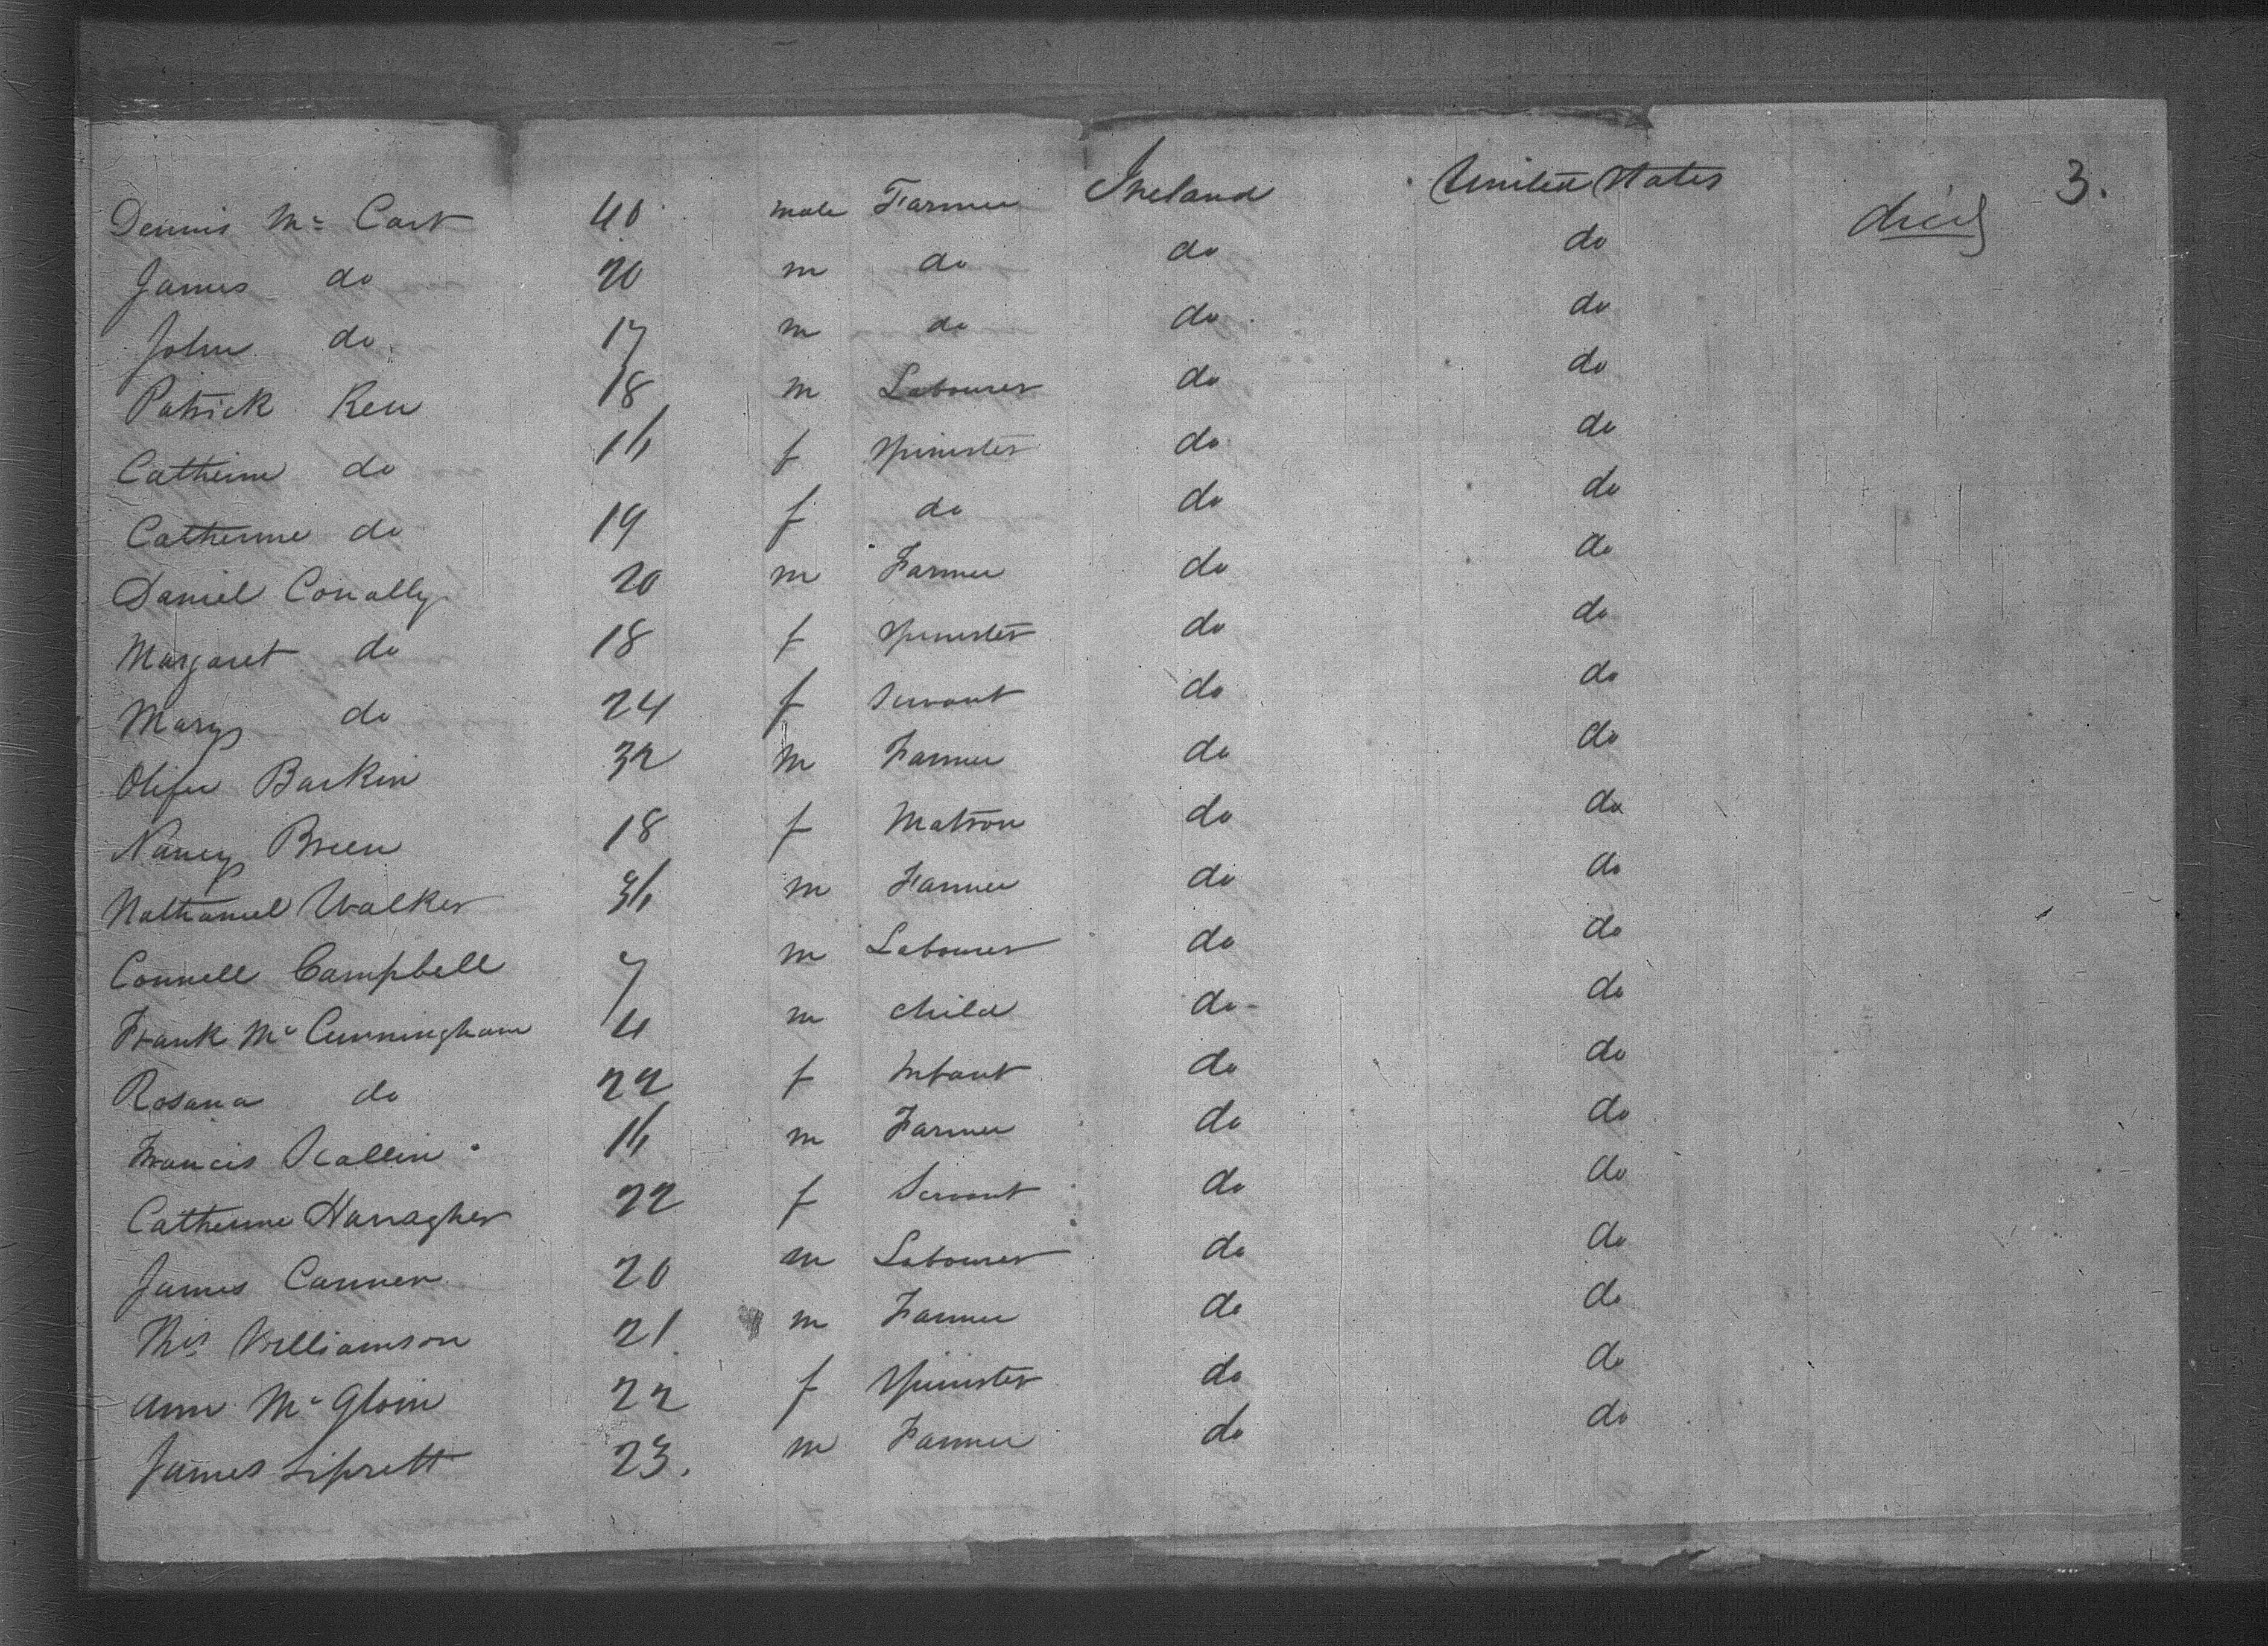 3.
Dennis Mc Cart 40 male Farmer Ireland United States died
James do 20 m do do do
John do 17 m do do do
Patrick Keu 18 m Labourer do do
Catherine do 16 f Spinster do do
Catherine do 19 f do do do
Daniel Conally 20 m Farmer do do
Margaret do 18 f Spinster do do
Mary do 24 f Servant do do
Olifer Barkin 32 m Farmer do do
Nancy Breen 18 f Matron do do
Nathaniel Walker 36 m Farmer do do
Connell Campbell 7 m Labourer do do
Frank Mc Cunningham 4 m child do do
Rosana do 22 f Infant do do
Francis Scallin 16 m Farmer do do
Catherine Hanagher 22 f Servant do do
James Canner 20 m Labourer do do
Thos Williamson 21 m Farmer do do
Ann Mc Gloin 22 f Spinster do do
James Liprett 23. m Farmer do do